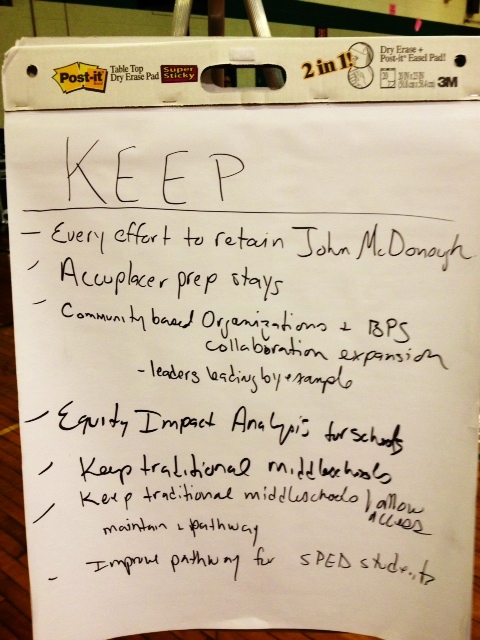 Post-it
Table Top
Dry Erase Pad
Super
Sticky
2 in 1!
Dry Erase +
Post-it® Easel Pad!
20
20 IN x 23 IN
(50.8 cm x 58.4 cm)
3M
KEEP
- Every effort to retain John McDonough
- Accuplacer prep stays
- Community based Organizations + BPS
collaboration expansion
- leaders leading by example
- Equity Impact Analysis for schools
- Keep traditional middleschools
- Keep traditional middleschools / allow
access
maintain + pathway
- Improve pathway for SPED students